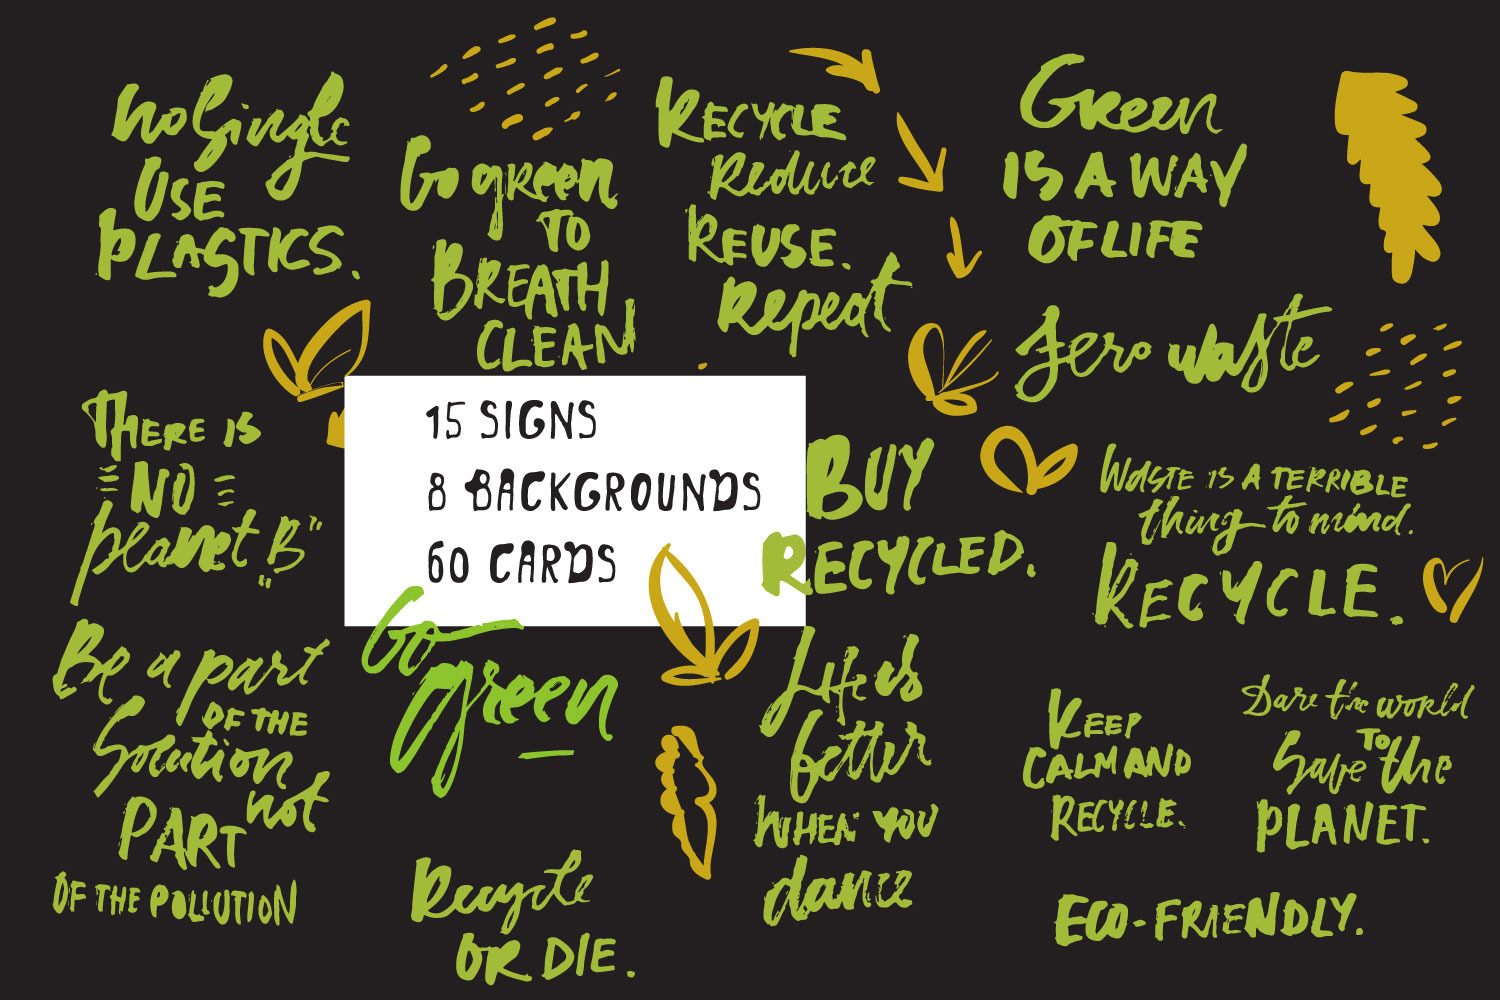 No Single
USE
PLASTICS.
Go green
TO
BREATH
CLEAN
RECYCLE
Reduce
REUSE.
Repeat
Green
IS A WAY
OF LIFE
Zero waste
THERE IS
NO
planet "B"
15 SIGNS
8 BACKGROUNDS
60 CARDS
BUY
RECYCLED.
WASTE IS A TERRIBLE
thing to mind.
RECYCLE.
Be a part
OF THE
Solution
not
PART
OF THE POLLUTION
Go
green
Life is
better
WHEN YOU
dance
KEEP
CALM AND
RECYCLE.
Dare the world
TO
Save the
PLANET.
Recycle
OR DIE.
ECO-FRIENDLY.